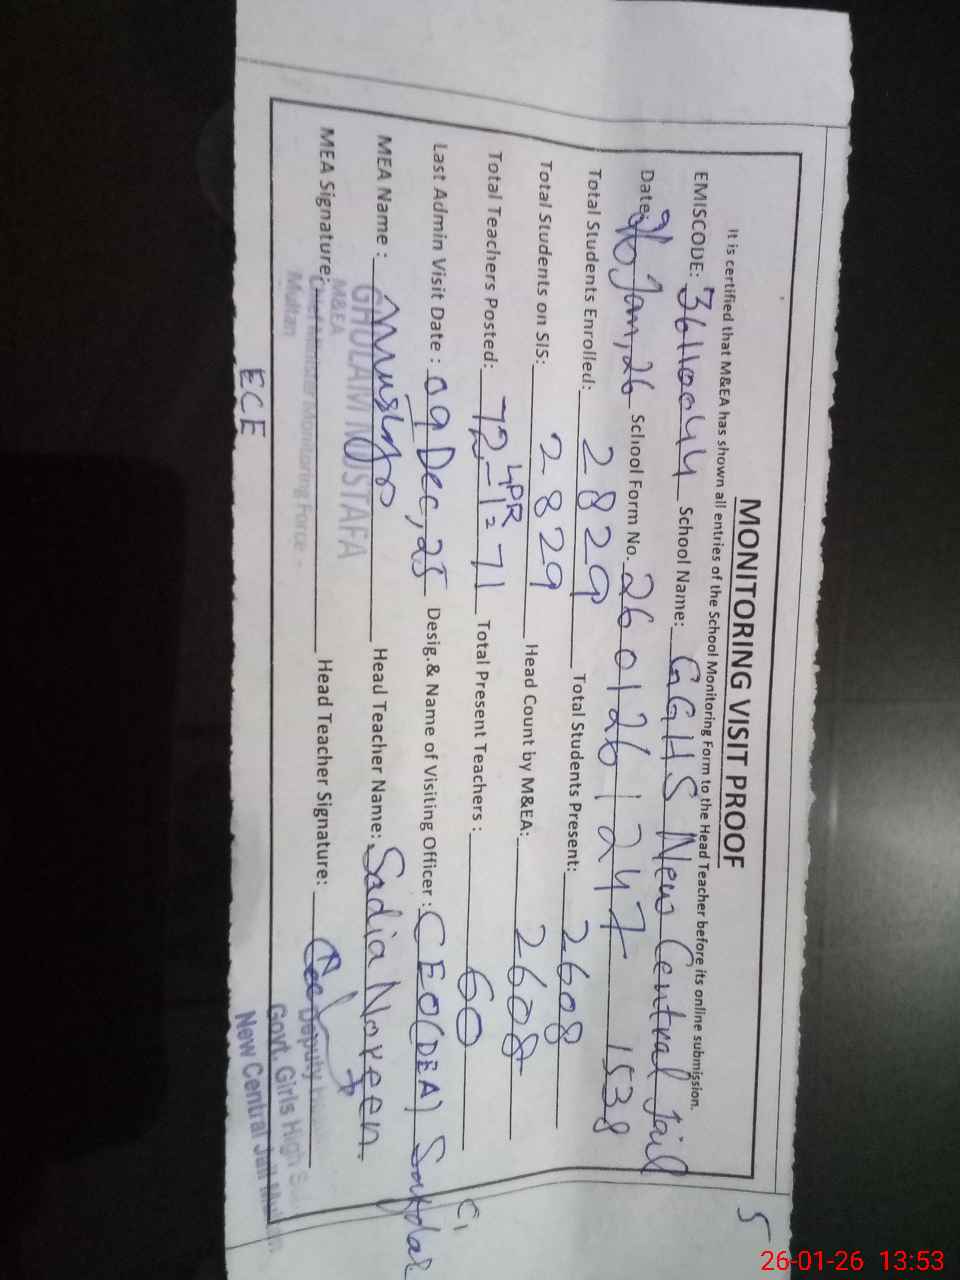 5
MONITORING VISIT PROOF
It is certified that M&EA has shown all entries of the School Monitoring Form to the Head Teacher before its online submission.
EMISCODE: 36110044 School Name: GGHS New Central Jail
Date: 26 Jan, 26 School Form No. 26 01 26 1247 1538
Total Students Enrolled: 2829 Total Students Present: 2608
Total Students on SIS: 2829 Head Count by M&EA: 2608
4PR
Total Teachers Posted: 72-1=71 Total Present Teachers : 60
Last Admin Visit Date : 09 Dec, 25 Desig.& Name of Visiting Officer : CEO(DEA)
MEA Name : Head Teacher Name: Sadia Noreen
GHULAM MUSTAFA
M&EA
MEA Signature: Head Teacher Signature:
Chief Minister Monitoring Force -
Multan
Deputy
Govt. Girls High
New Central Jail Multan
ECE
26-01-26 13:53